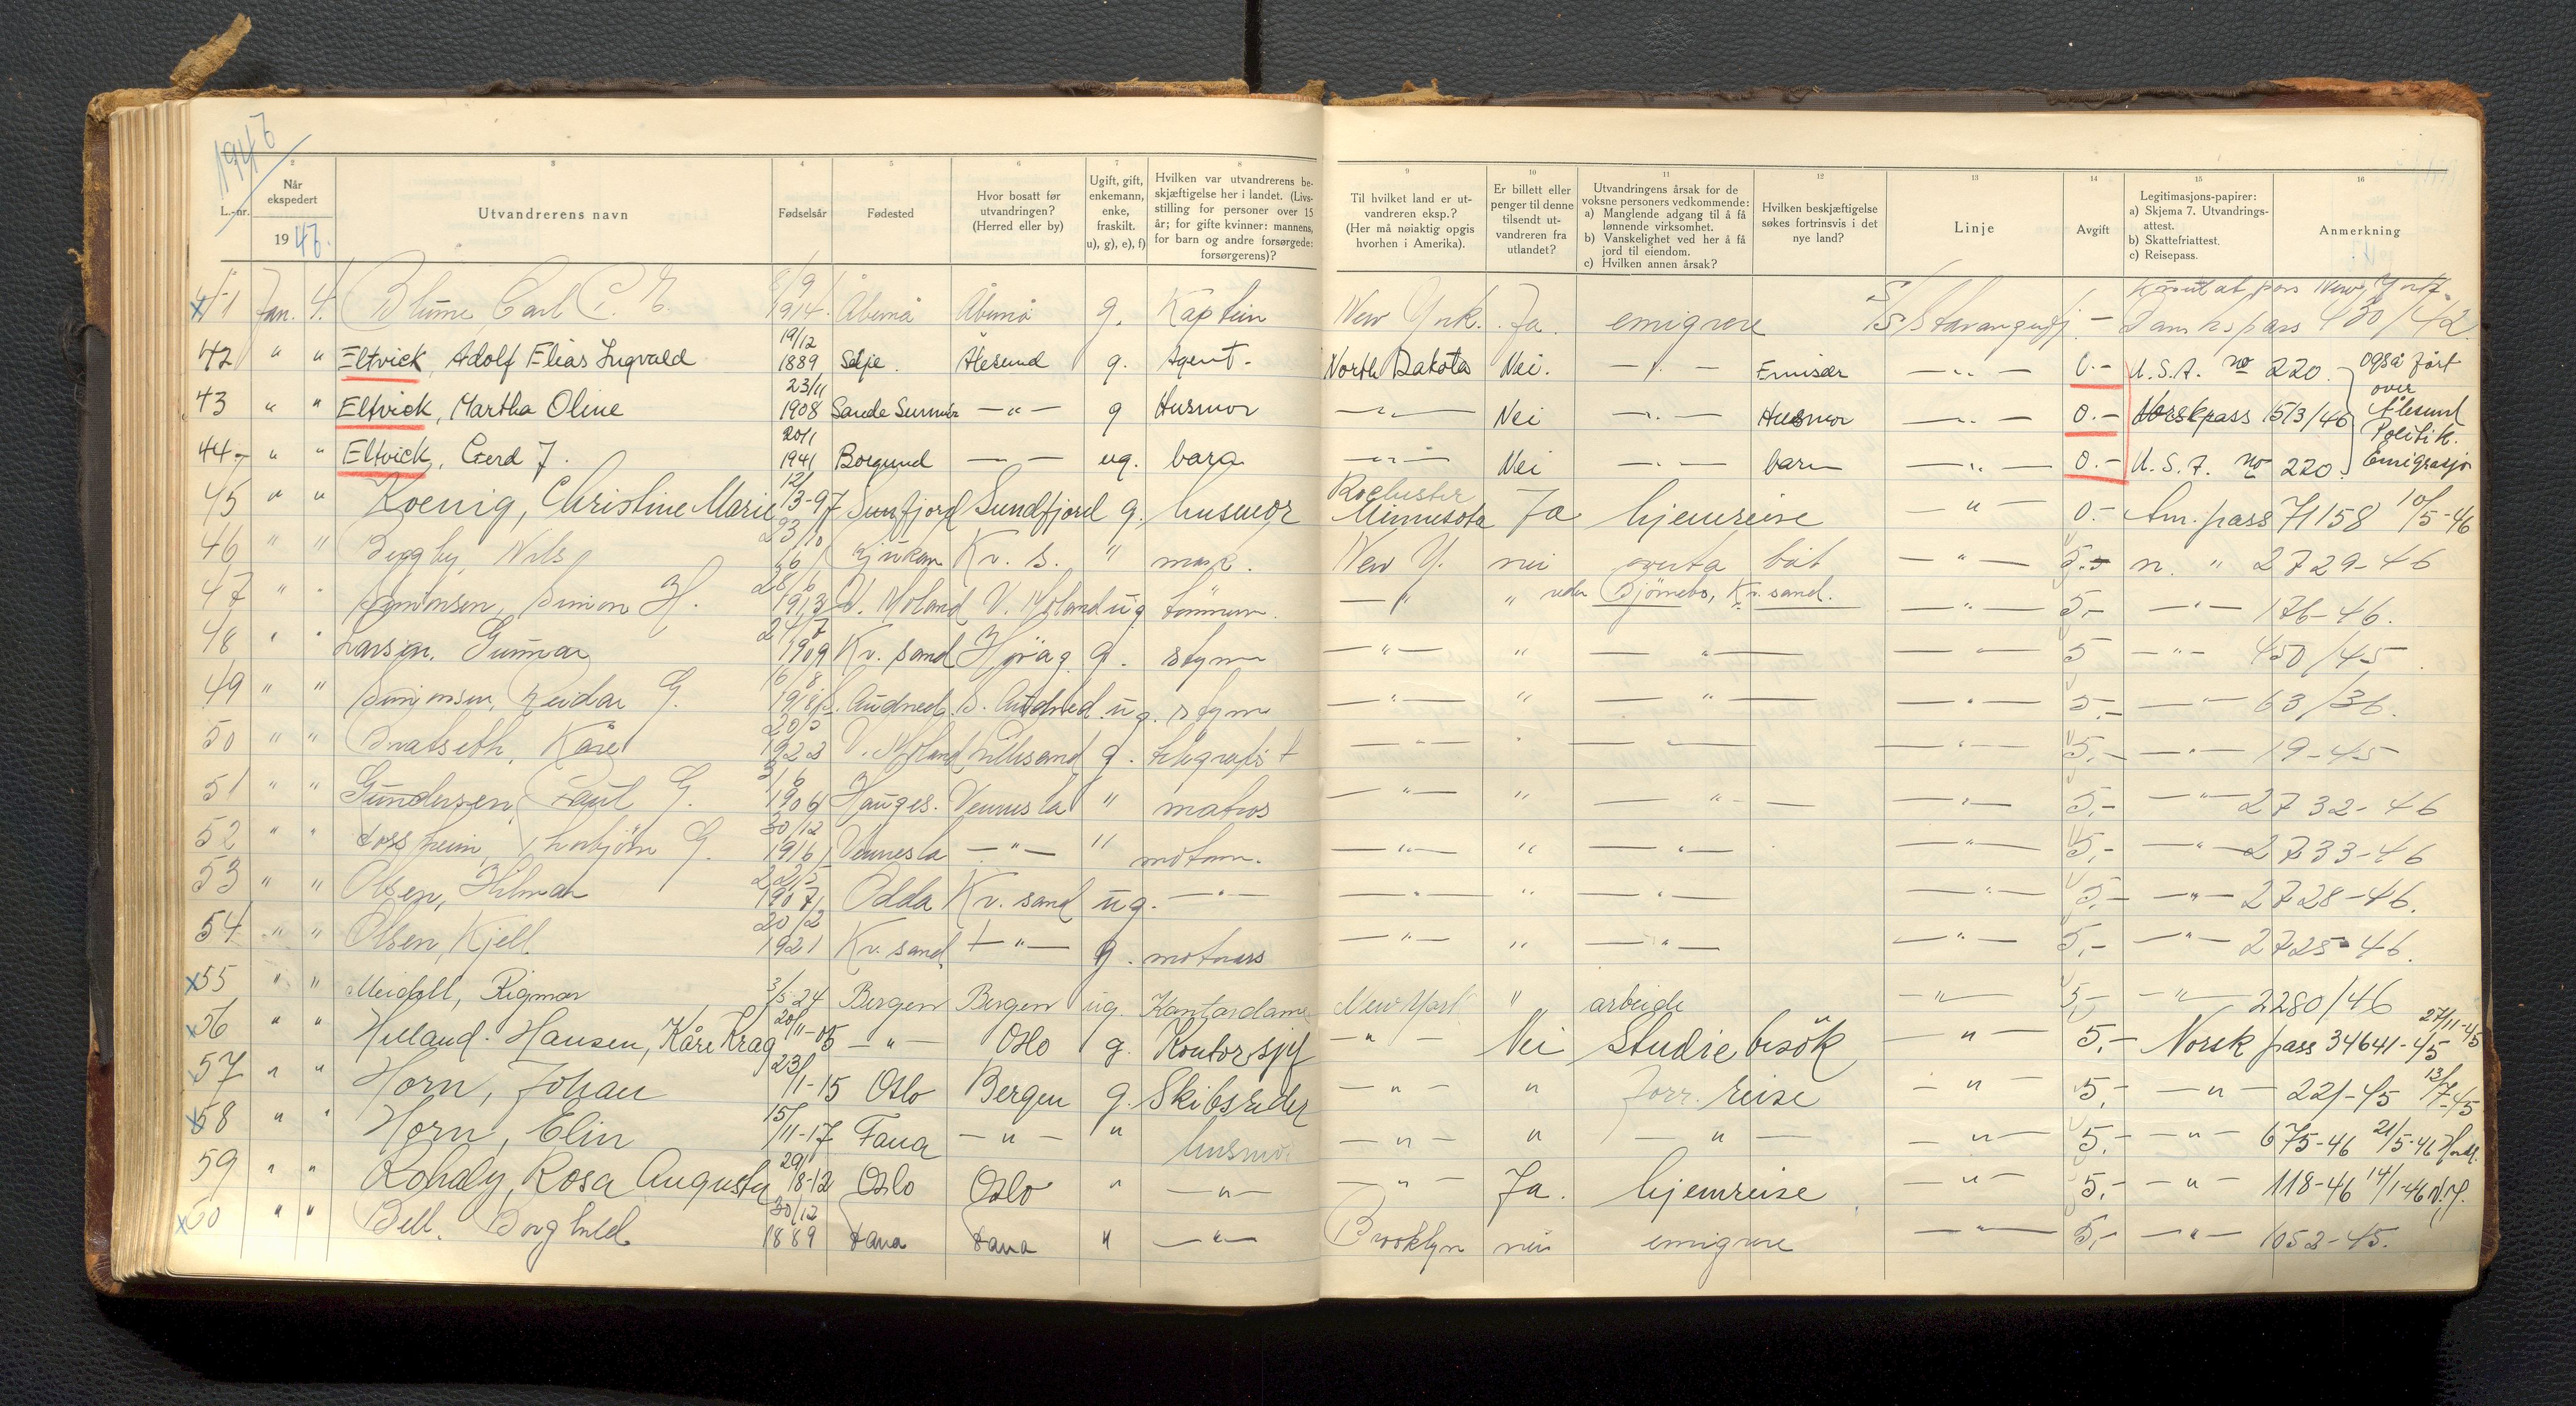 1946
2 3 4 5 6 7 8
L.-nr.
Når ekspedert
19 46.
Utvandrerens navn
Fødselsår
Fødested
Hvor bosatt før utvandringen? (Herred eller by)
Ugift, gift, enkemann, enke, fraskilt. u), g), e), f)
Hvilken var utvandrerens beskjæftigelse her i landet. (Livsstilling for personer over 15 år; for gifte kvinner: mannens, for barn og andre forsørgede: forsørgerens)?
9 10 11 12 13 14 15 16
Til hvilket land er utvandreren eksp.? (Her må nøiaktig opgis hvorhen i Amerika).
Er billett eller penger til denne tilsendt utvandreren fra utlandet?
Utvandringens årsak for de voksne personers vedkommende:
a) Manglende adgang til å få lønnende virksomhet.
b) Vanskelighet ved her å få jord til eiendom.
c) Hvilken annen årsak?
Hvilken beskjæftigelse søkes fortrinsvis i det nye land?
Linje
Avgift
Legitimasjons-papirer:
a) Skjema 7. Utvandringsattest.
b) Skattefriattest.
c) Reisepass.
Anmerkning
41 Jan. 4. Blume Carl 8/9 1914. Åbenrå Åbenrå g. Kaptein New York. Ja. emigrere S/S Stavangerfj. - Danskpass 430/42
42 " " Eltvick, Adolf Elias Ingvald 19/12 1889 Selje. Ålesund g. Agent. North Dakota Nei. - " - Emisær - " - 0.- U.S.A. no 220. også ført over Ålesund Politik. Emigrasjo
43 " " Eltvick, Martha Oline 23/11 1908 Sande Sunmør - " - g Husmor - " - Nei - " - Husmor - " - 0.- Norskpass 1513/46
44 " " Eltvick, Gerd J. 20/1 1941 Borgund - - ug. barn - " - Nei - " - barn - " - 0.- U.S.A. no 220.
45 " " Koenig, Christine Marie 12/3-97 Sunfjord Sundfjord g. husmor Rochester Minnesota Ja hjemreise - " - 0.- Am. pass 71158 10/5-46
46 " " Nils 23/10 Rjukan Kv. s. " mask. New Y. nei overta båt - " - 5.- n. " 2729-46
47 " " Simonsen, Simon H. 28/6 1913 V. Moland V. Moland ug tömmerm. - " - " reder Bjørnebo, Kv. sand. - " - 5,- - " - 176-46.
48 " " Larsen, Gunnar 24/7 1909 Kv. sand g. styrm - " - " - " - - " - 5 - " - 450/45
49 " " Simonsen, Reidar G. 16/8 S. Audned S. Audned ug. styrm - " - " - " - - " - 5,- - " - 63/36.
50 " " Kåre 20/5 1923 V. Moland Lillesand g. telegrafist - " - " - " - - " - 5,- - " - 19-45
51 " " Gundersen, Paul G. 3/6 1906 Hauges. Vennesla " matros - " - " - " - - " - 5,- - " - 2732-46
52 " " Thorbjörn G. 30/12 1916 Vennesla - " - " motorm. - " - " - " - - " - 5,- - " - 2733-46
53 " " Olsen, Hilmar 22/5 1907 Odda Kv. sand ug. - " - - " - " - " - - " - 5,- - " - 2728-46.
54 " " Olsen, Kjell 20/2 1921 Kv. sand - " - g. motorass - " - " - " - - " - 5,- - " - 2725-46.
x55 " " Meidell, Rigmor 3/5-24 Bergen Bergen ug. Kontordame New York " arbeide - " - 5,- - " - 2280/46
x56 " " Helland-Hansen, Kåre Krag 20/11-05 - " - Oslo g. Kontorsjef - " - Nei Studie besök - " - 5,- Norsk pass 34641-45 27/11-45
57 " " Horn, Johan 23/1-15 Oslo Bergen g. Skibsreder - " - " forr. reise - " - 5,- - " - 221-45 13/7-45
x58 " " Horn, Elin 15/11-17 Fana - " - " husmor - " - " - " - - " - 5,- - " - 675-46 21/5-46
59 " " Rosa Augusta 29/8-12 Oslo Oslo " - " - - " - Ja. hjemreise - " - 5,- - " - 118-46 14/1-46
x60 " " Bell. Borghild 30/12 1889 Fana Fana " - " - Brooklyn nei emigrere - " - 5,- - " - 1052-45.